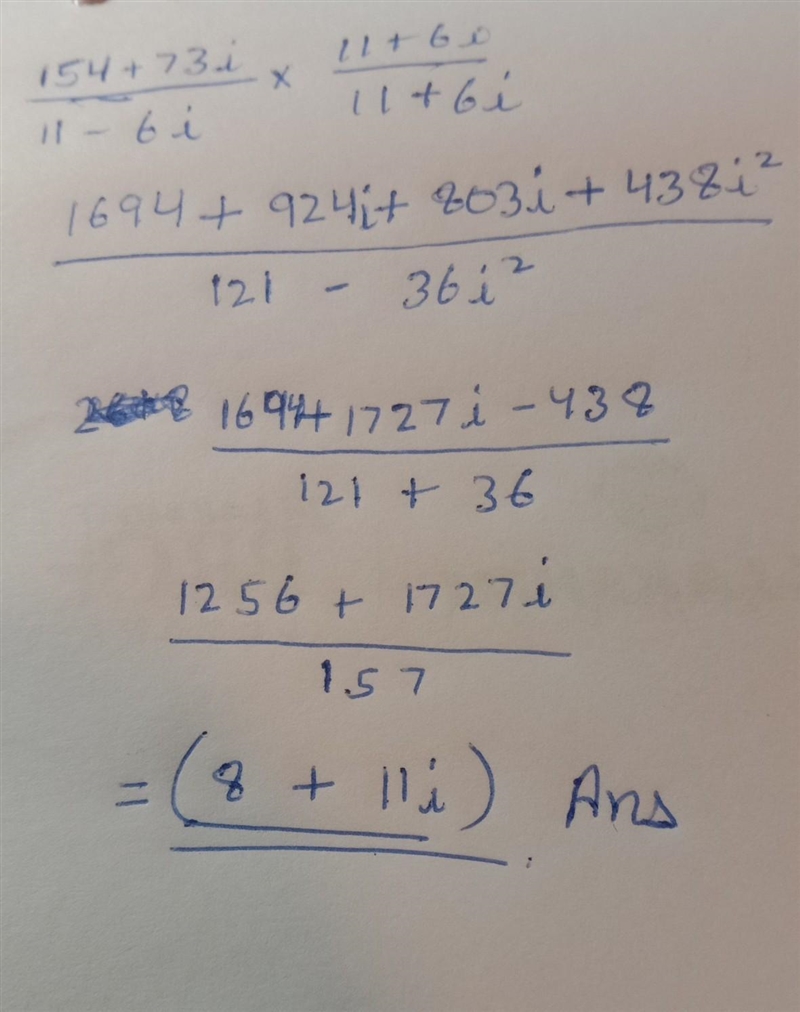 154 + 73i / 11 - 6i × 11 + 6i / 11 + 6i
1694 + 924i + 803i + 438i²
121 - 36i²
1694 + 1727i - 438
121 + 36
1256 + 1727i
157
= (8 + 11i) Ans